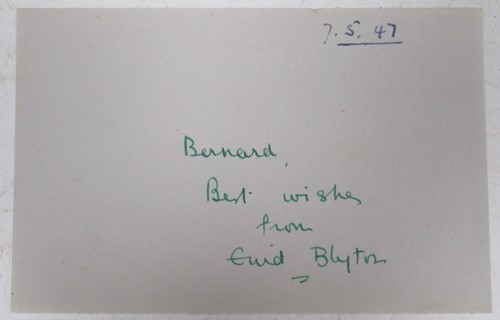 7.5.47
Bernard,
Best wishes
from
Enid Blyton